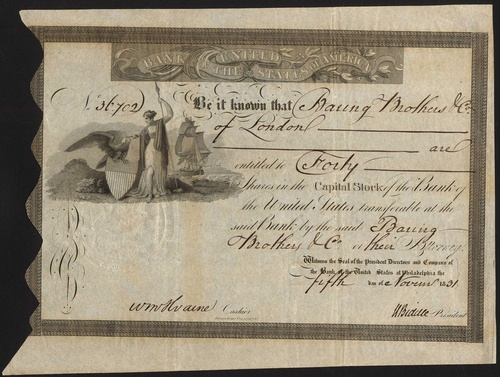 BANK OF THE UNITED STATES OF AMERICA
No. 36702 Be it known that Baring Brothers & Co.
of London
are
entitled to Forty
Shares in the Capital Stock of the Bank of
the United States transferable at the
said Bank by the said Baring
Brothers & Co. or their Attorney
Witness the Seal of the President Directors and Company of
the Bank of the United States at Philadelphia the
fifth day of November 1831
Cashier
N Biddle President